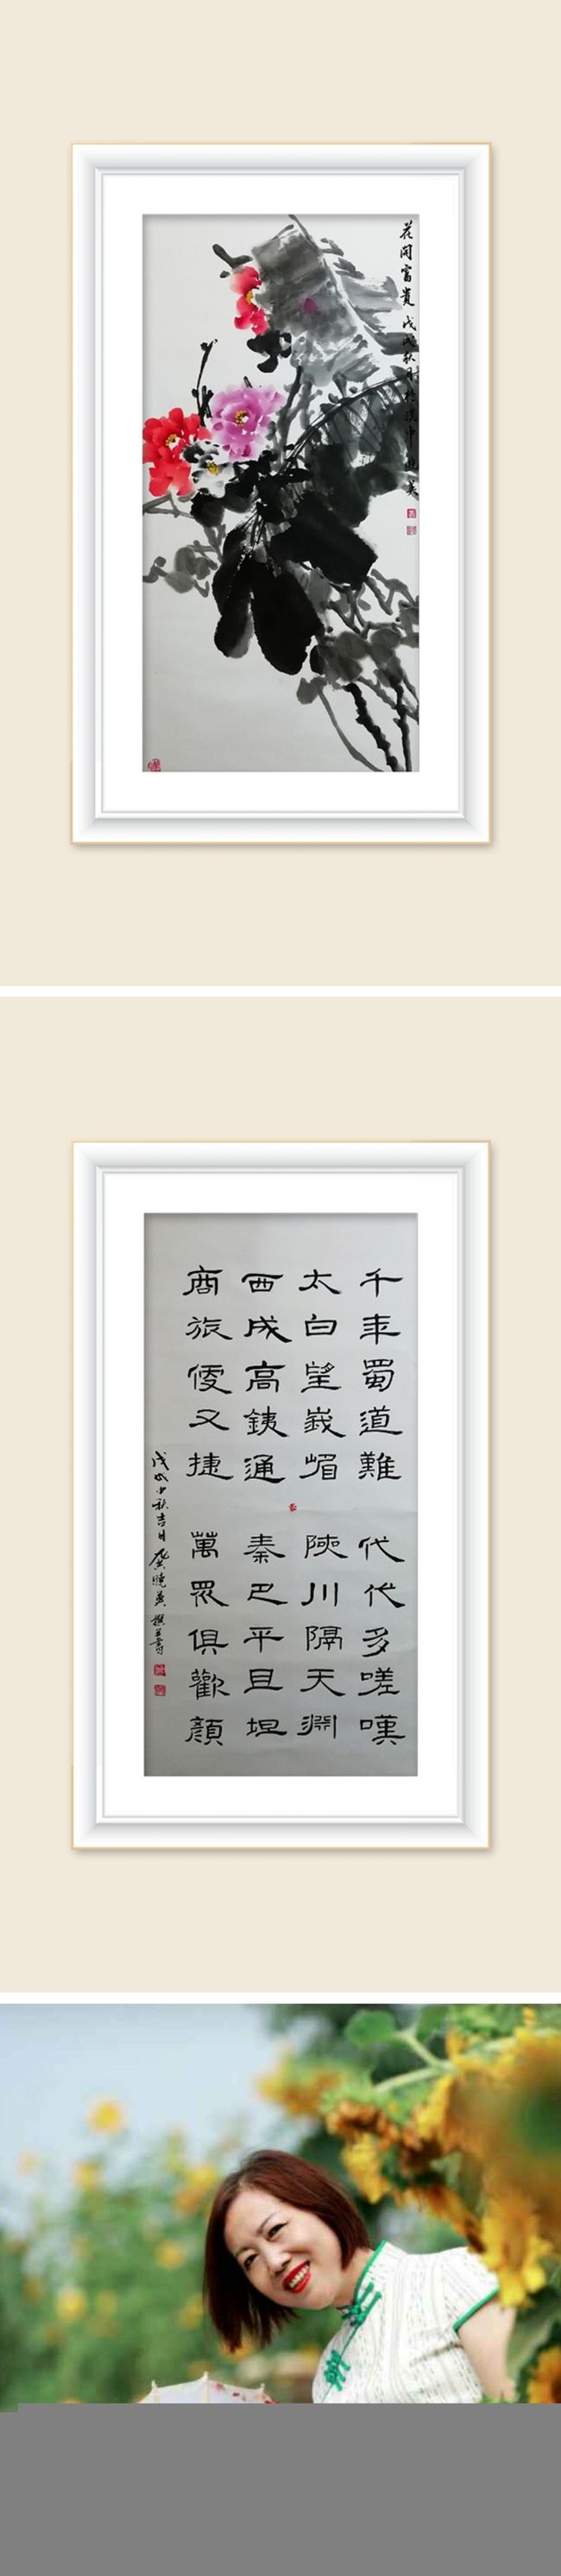 花開富貴 戊戌秋月於漢中曉英
千年蜀道難 代代多嗟嘆
太白望峨嵋 陝川隔天淵
西成高鐵通 秦巴平且坦
商旅便又捷 萬眾俱歡顏
戊戌中秋吉日 龔曉英 撰並書